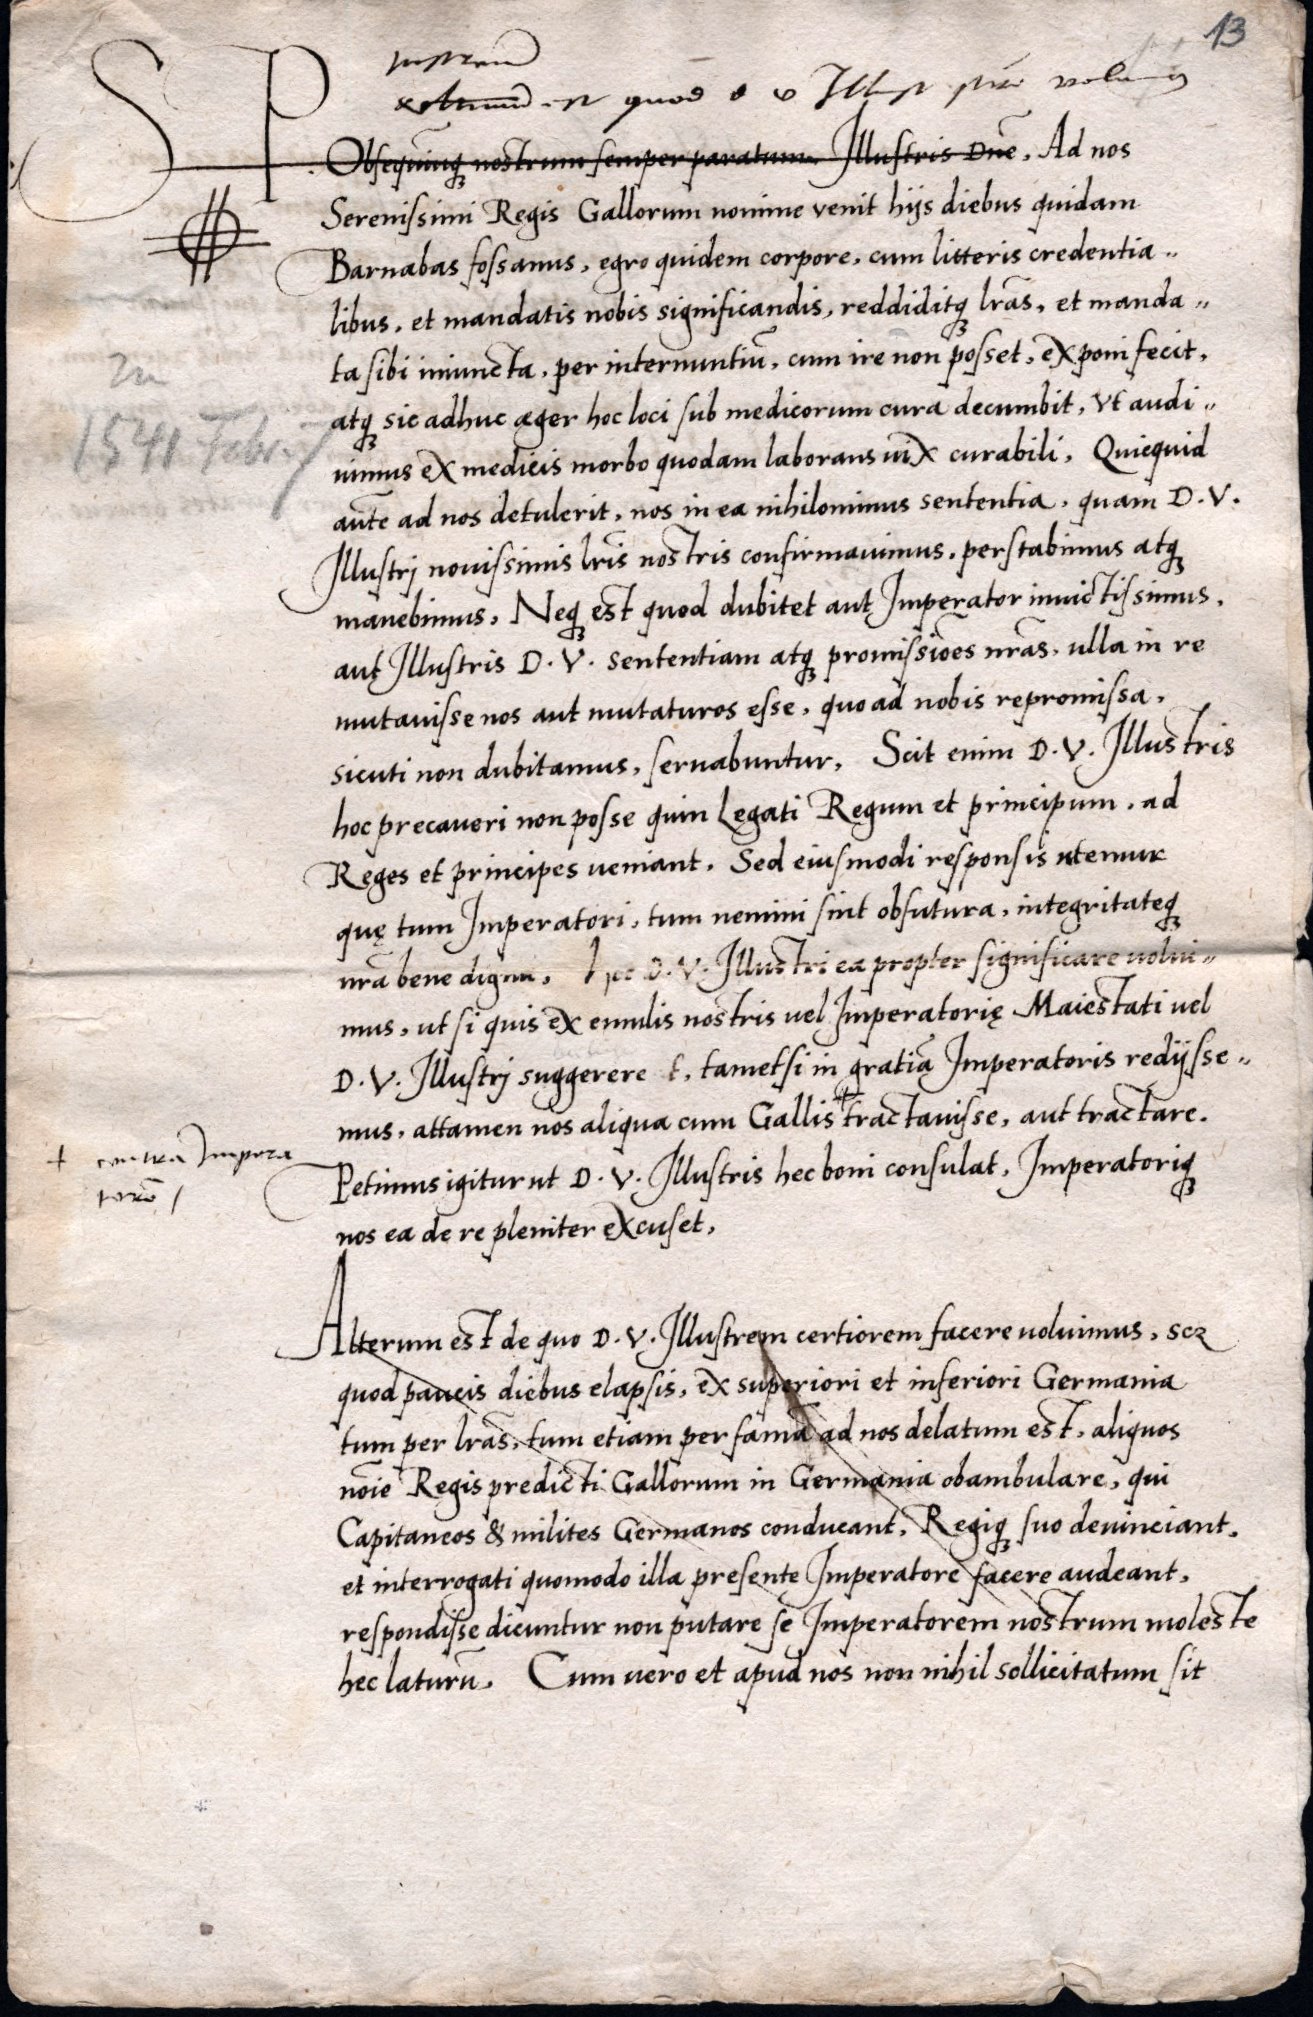 13
S P
est quod D V Illust
Obsequiumq nostrum semper paratum. Illustris Dne. Ad nos
Serenissimi Regis Gallorum nomine venit hijs diebus quidam
Barnabas fossanus, egro quidem corpore, cum litteris credentia„
libus, et mandatis nobis significandis, reddiditq lras, et manda„
ta sibi iniuncta, per internuntiū, cum ire non posset, exponi fecit,
atq sic adhuc æger hoc loci sub medicorum cura decumbit, vt audi„
1541 Febr.
uimus ex medicis morbo quodam laborans uix curabili. Quicquid
aute ad nos detulerit, nos in ea nihilominus sententia, quam D. V.
Illustrj nouissimis lris nostris confirmauimus, perstabimus atq
manebimus. Neq est quod dubitet aut Imperator inuictissimus,
aut Illustris D. V. sententiam atq promissiões nras, ulla in re
mutauisse nos aut mutaturos esse, quoad nobis repromissa,
sicuti non dubitamus, seruabuntur. Scit enim D. V. Illustris
hoc precaueri non posse quin Legati Regum et principum, ad
Reges et principes ueniant. Sed eiusmodi responsis utemur
quę tum Imperatori, tum nemini sint obfutura, integritateq
nra bene digna. hec D. V. Illustri ea propter significare uolui„
mus, ut si quis ex emulis nostris uel Imperatorię Maiestati uel
D. V. Illustrj suggereret, tametsi in gratiā Imperatoris redijsse„
mus, attamen nos aliqua cum Gallis + tractauisse, aut tractare.
+ contra Impera
torē /
Petimus igitur ut D. V. Illustris hec boni consulat, Imperatoriq
nos ea de re pleniter excuset.
Alterum est de quo D. V. Illustrem certiorem facere uoluimus, scz
quod paucis diebus elapsis, ex superiori et inferiori Germania
tum per lras, tum etiam per famā ad nos delatum est, aliquos
noie Regis predicti Gallorum in Germania obambulare, qui
Capitaneos & milites Germanos conducant, Regiq suo deuinciant,
et interrogati quomodo illa presente Imperatore facere audeant,
respondisse dicuntur non putare se Imperatorem nostrum moleste
hec laturū. Cum uero et apud nos non nihil sollicitatum sit